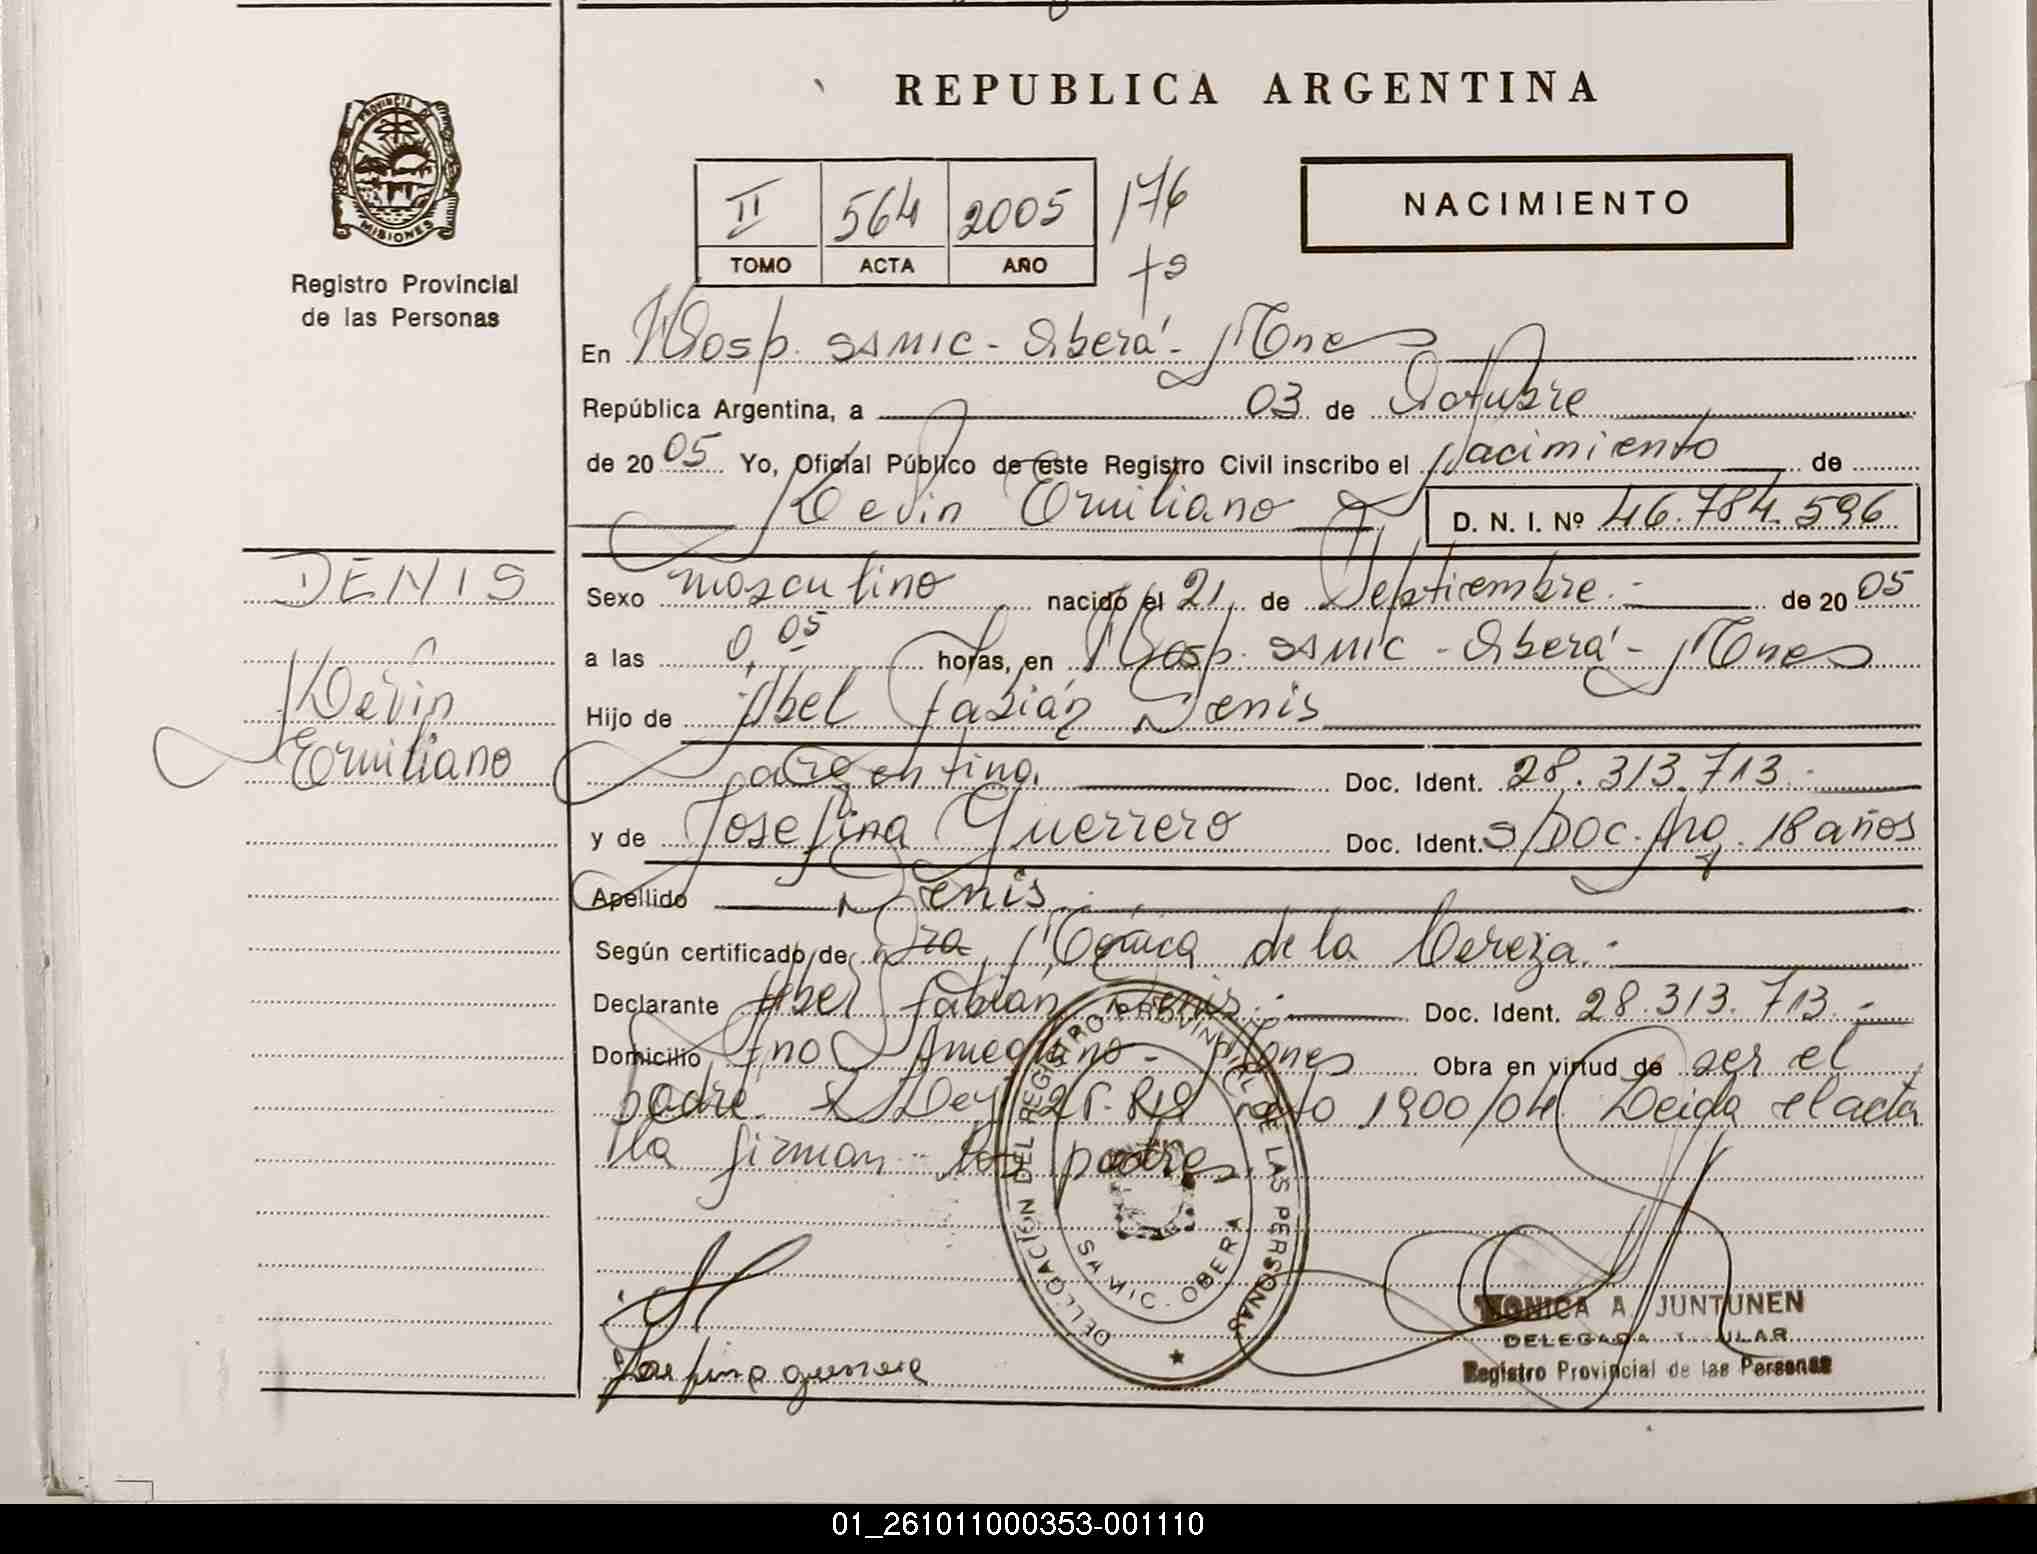 REPUBLICA ARGENTINA
PROVINCIA DE
MISIONES
Registro Provincial
de las Personas
II 564 2005 176
TOMO ACTA AÑO
NACIMIENTO
En Hosp. SAMIC - Oberá - Mnes
República Argentina, a 03 de Octubre
de 2005 Yo, Oficial Público de este Registro Civil inscribo el Nacimiento de
Kevin Emiliano D. N. I. Nº 46.784.596
DENIS
Kevin
Emiliano
Sexo masculino nacido el 21 de Septiembre.- de 2005
a las 0,05 horas, en Hosp. SAMIC - Oberá - Mnes
Hijo de Abel Fabián Denis
argentino. Doc. Ident. 28.313.713.-
y de Josefina Guerrero Doc. Ident. S/DOC. Arg. 18 años
Apellido Denis.
Según certificado de Dra Mónica de la Cereza.-
Declarante Abel Fabián Denis.- Doc. Ident. 28.313.713.-
Domicilio Ameghino - Mnes Obra en virtud de ser el
padre. Ley 25.819 Dto 1900/04. Leida el acta
la firman los padres
DELEGACION DEL REGISTRO PROVINCIAL DE LAS PERSONAS
SAMIC. OBERA
Josefina guerrero
MONICA A. JUNTUNEN
DELEGADA TITULAR
Registro Provincial de las Personas
01_261011000353-001110